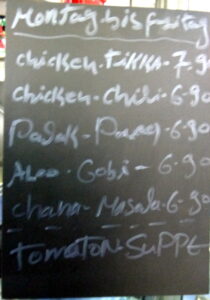 Montag bis freitag
chicken-TiKKA-7.9
chicken-Chili-6.90
Palak-Paneer-6.90
Aloo-Gobi-6.90
chana-Masala-6.90
TomatoN-SUPPE